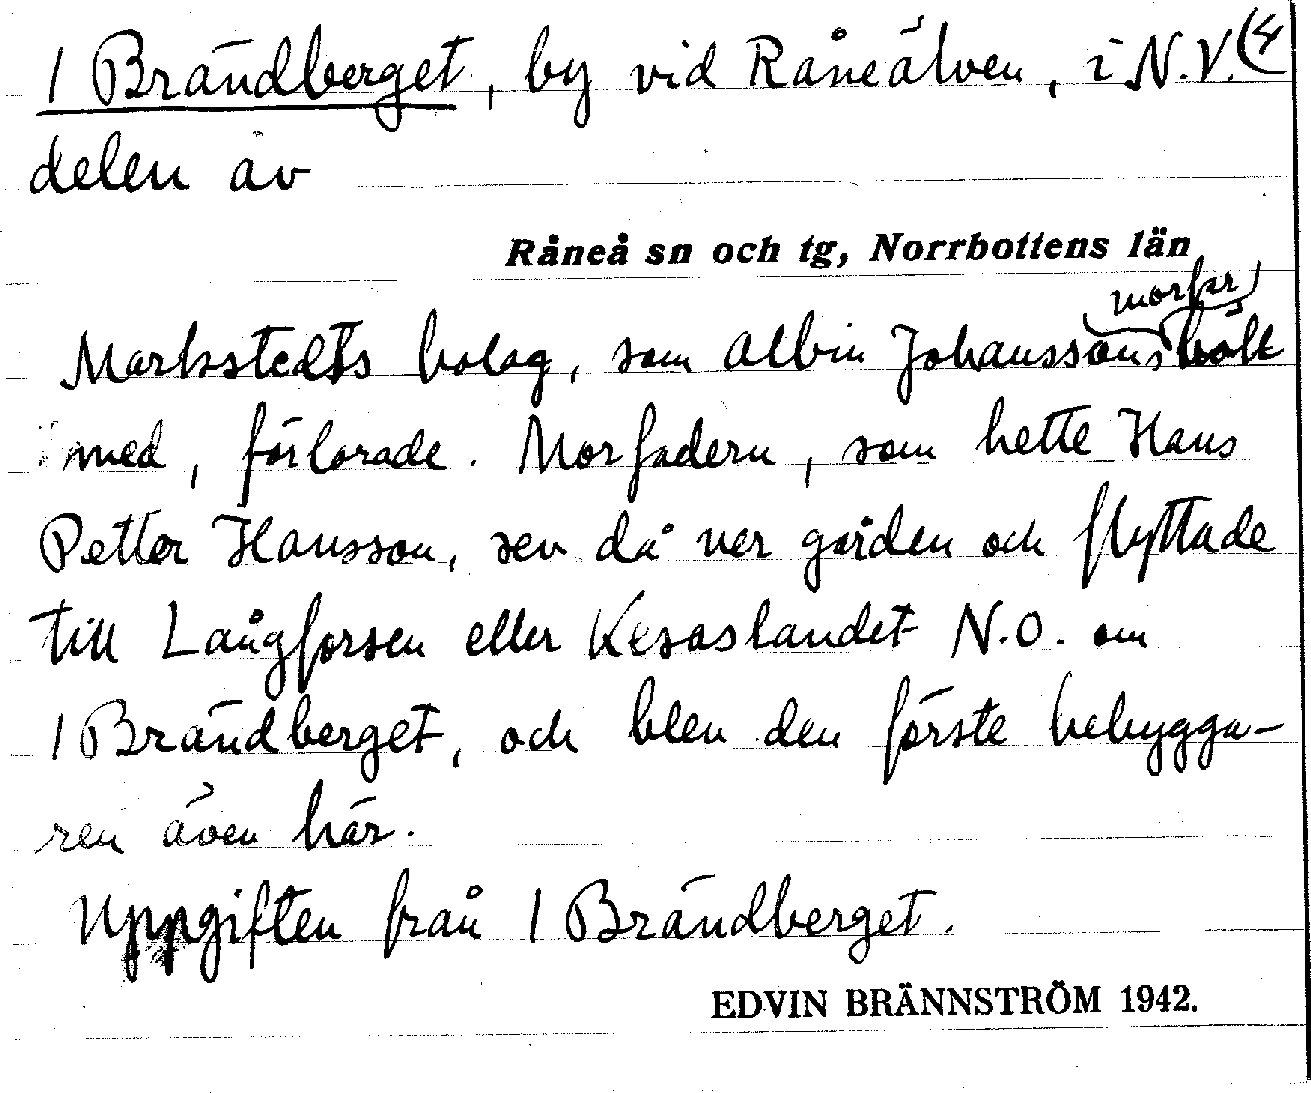 1 Brändberget, by vid Råneälven, i N.V. (4
delen av
Råneå sn och tg, Norrbottens län
morfar
Markstedts bolag, som Albin Johanssons höll
med, förlorade. Morfadern, som hette Hans
Petter Hansson, sev då ver gården och flyttade
till Långforsen eller Kesaslandet N.O. om
1 Brändberget, och blev den förste bebygga-
ren även här.
Uppgiften från 1 Brändberget.
EDVIN BRÄNNSTRÖM 1942.